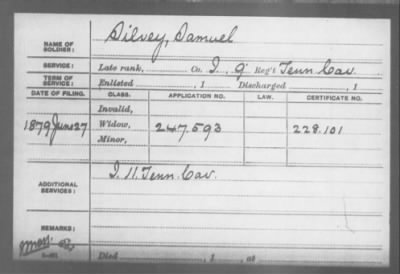 NAME OF SOLDIER: Silvey, Samuel
SERVICE: Late rank, Co. I, 9 Reg't Tenn Cav.
TERM OF SERVICE: Enlisted , 1 Discharged , 1
DATE OF FILING. CLASS. APPLICATION NO. LAW. CERTIFICATE NO.
Invalid,
1879 June 27 Widow, 247.593 228.101
Minor,
ADDITIONAL SERVICES: I. 11. Tenn. Cav.
REMARKS:
Died , 1 , at